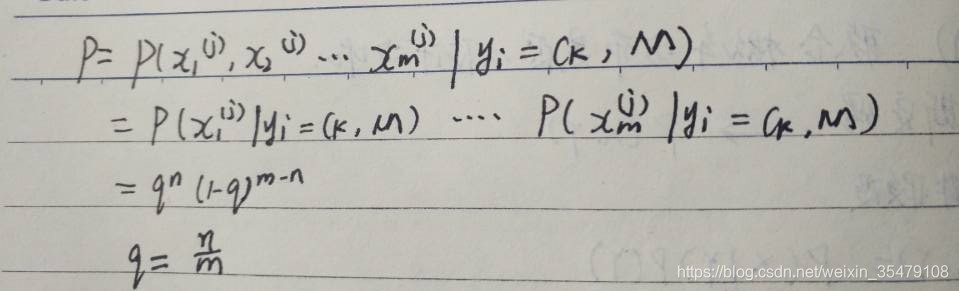 P= P(x₁⁽ʲ⁾, x₂⁽ʲ⁾ ··· xₘ⁽ʲ⁾ | yᵢ = Cₖ, M)
= P(x₁⁽ʲ⁾ | yᵢ = Cₖ, M) ···· P(xₘ⁽ʲ⁾ | yᵢ = Cₖ, M)
= qⁿ (1-q)ᵐ⁻ⁿ
q = n/m
https://blog.csdn.net/weixin_35479108